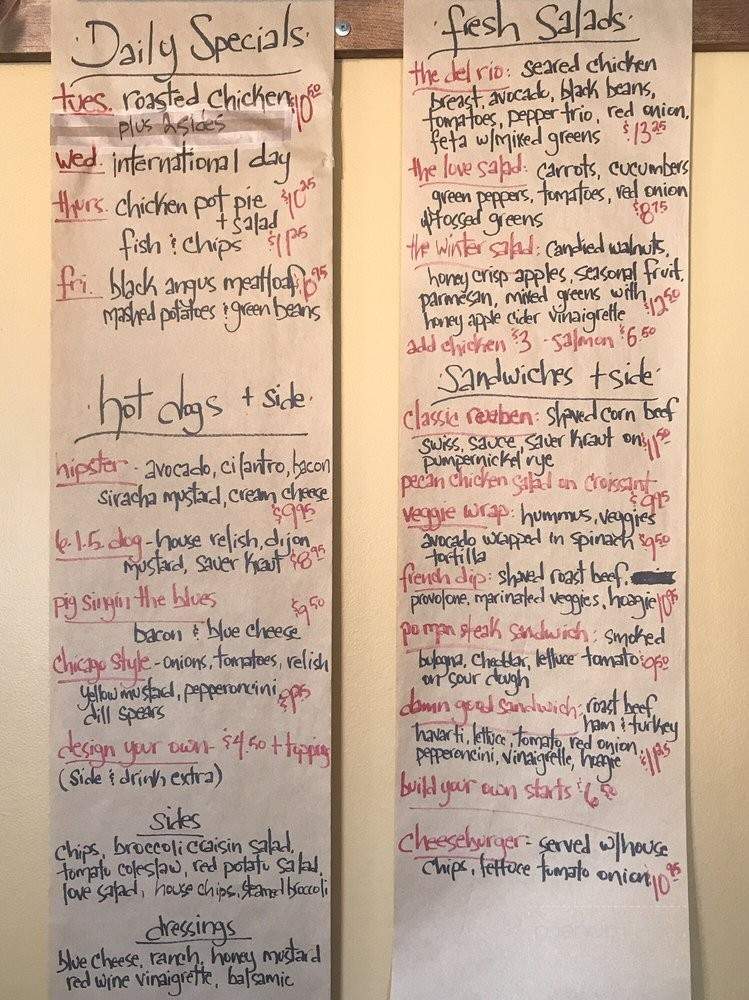 Daily Specials
tues. roasted chicken $10.50
plus 2 sides
wed. international day
thurs. chicken pot pie $10.25
+ salad
fish & chips $11.25
fri. black angus meatloaf $10.95
mashed potatoes & green beans
hot dogs + side
hipster - avocado, cilantro, bacon
siracha mustard, cream cheese
$9.95
6.1.5. dog - house relish, dijon
mustard, sauer kraut $8.95
pig singin the blues $9.50
bacon & blue cheese
chicago style - onions, tomatoes, relish
yellow mustard, pepperoncini, $9.25
dill spears
design your own - $4.50 + topping
(side & drink extra)
sides
chips, broccoli craisin salad,
tomato coleslaw, red potato salad,
love salad, house chips, steamed broccoli
dressings
blue cheese, ranch, honey mustard
red wine vinaigrette, balsamic
fresh Salads
the del rio: seared chicken
breast, avocado, black beans,
tomatoes, pepper trio, red onion,
feta w/mixed greens $13.25
the love salad: carrots, cucumbers
green peppers, tomatoes, red onion
w/tossed greens $8.75
the winter salad: candied walnuts,
honey crisp apples, seasonal fruit,
parmesan, mixed greens with
honey apple cider vinaigrette $12.50
add chicken $3 - salmon $6.50
Sandwiches + side
classic reuben: shaved corn beef
swiss, sauce, sauer kraut on $11.50
pumpernickel rye
pecan chicken salad on croissant
$9.95
veggie wrap: hummus, veggies
avocado wrapped in spinach $9.50
tortilla
french dip: shaved roast beef,
provolone, marinated veggies, hoagie 10.95
po man steak sandwich: smoked
bologna, cheddar, lettuce tomato $9.50
on sour dough
damn good sandwich: roast beef
ham & turkey
havarti, lettuce, tomato, red onion,
pepperoncini, vinaigrette, hoagie $11.25
build your own starts $6.50
cheeseburger - served w/house
chips, lettuce tomato onion $10.95